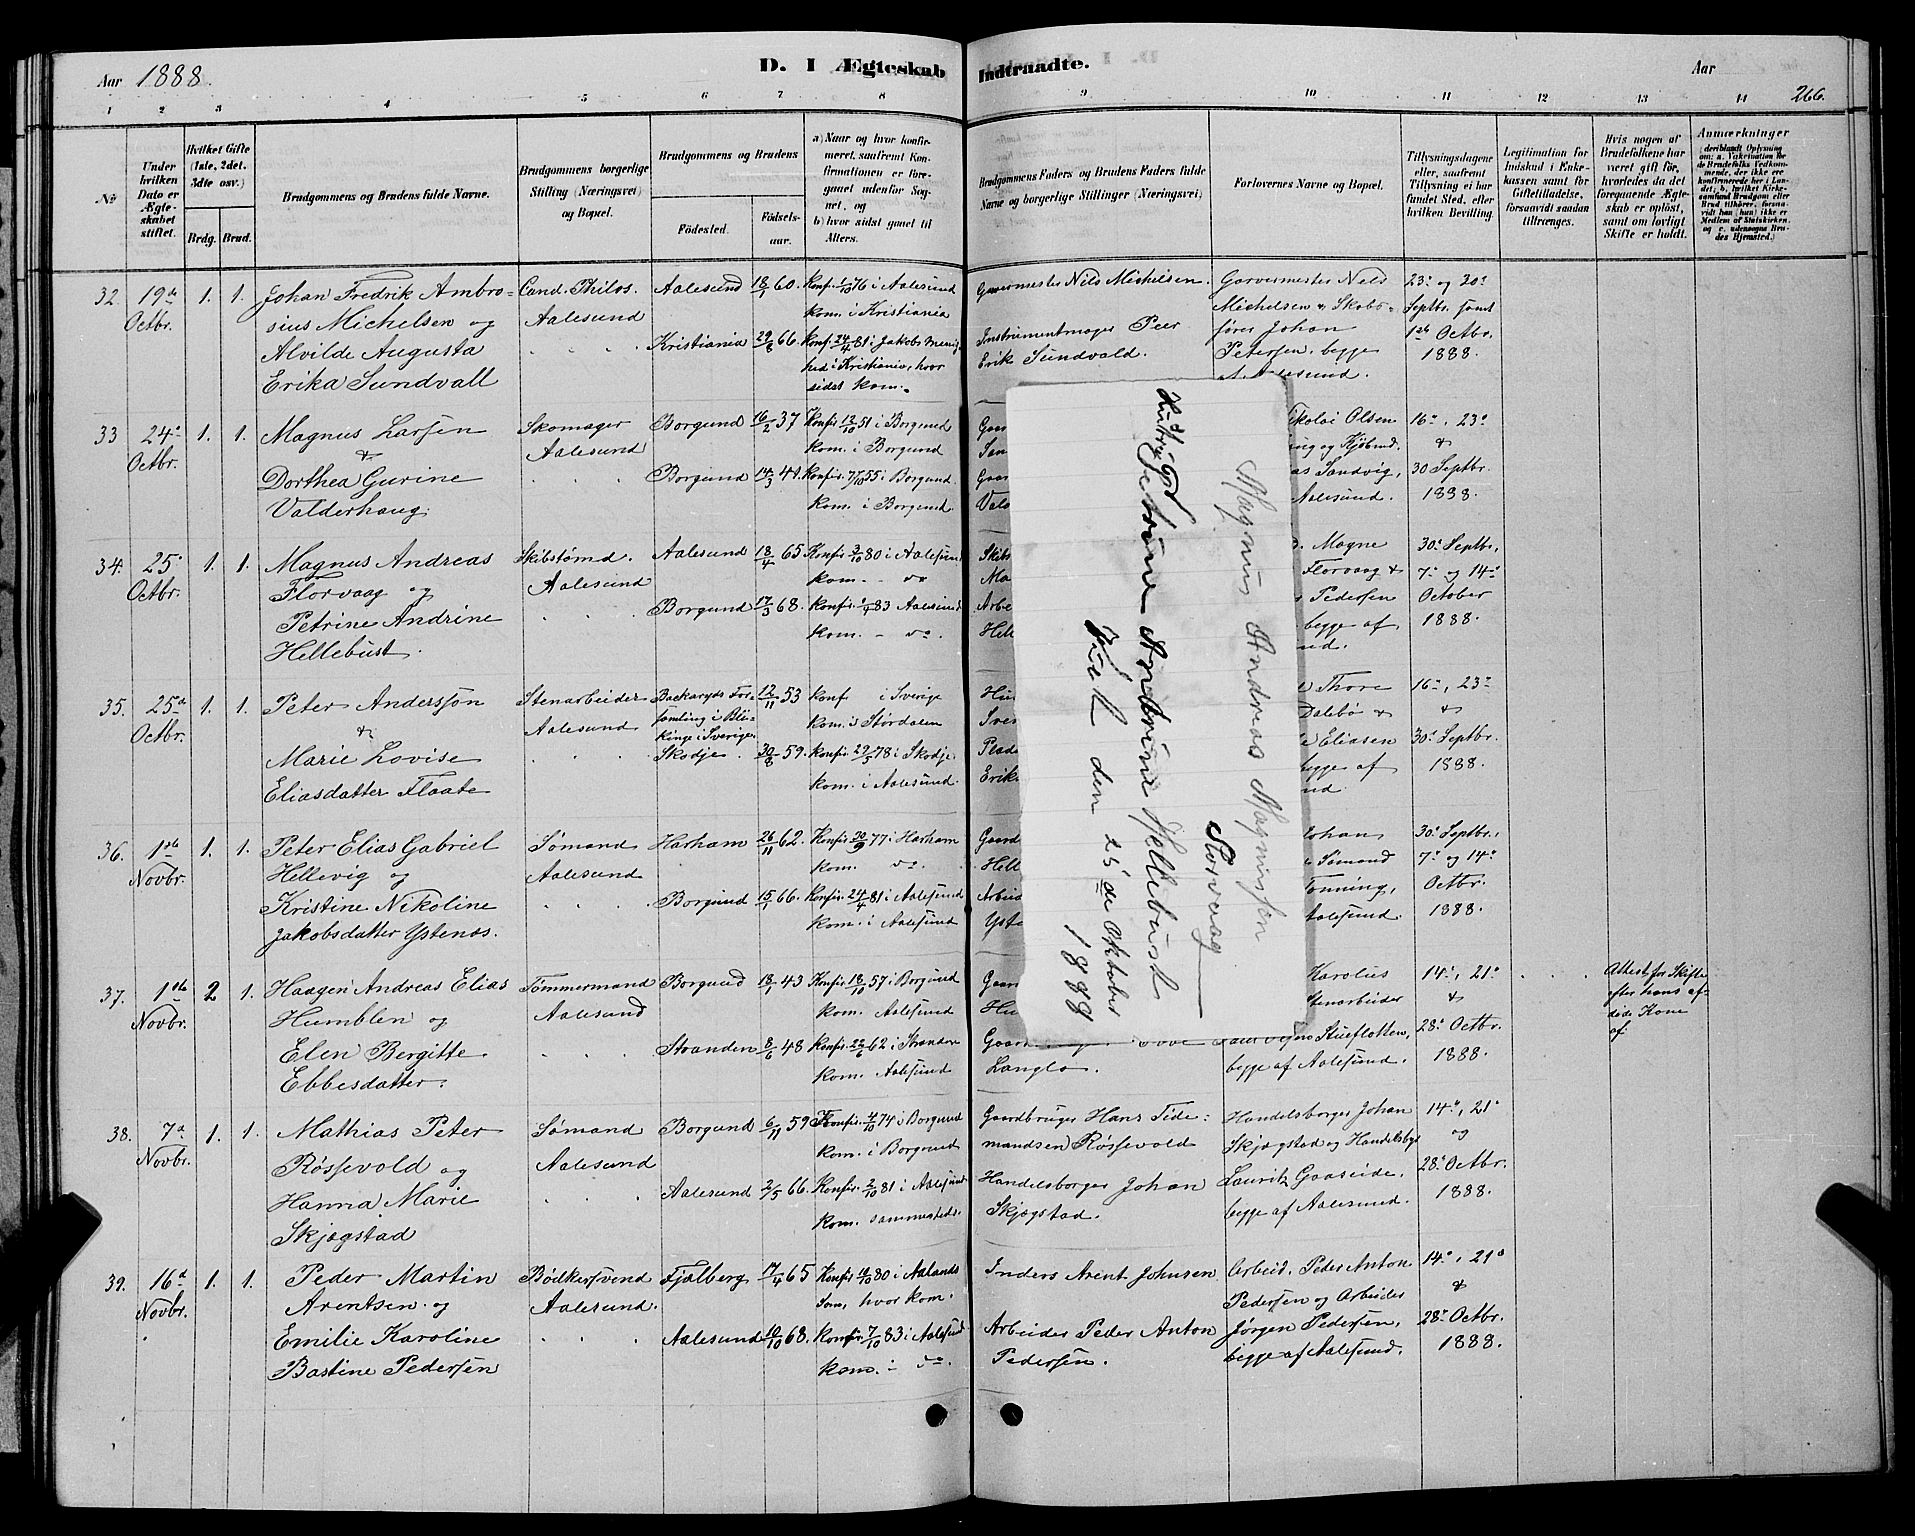 Aar 1888.
D. I Ægteskab
Indtraadte.
Aar
266.
1 2 3 4 5 6 7 8 9 10 11 12 13 14
No
Under hvilken Dato er Ægteskabet stiftet.
Hvilket Gifte (1ste, 2det, 3dte osv.)
Brdg. Brud.
Brudgommens og Brudens fulde Navne.
Brudgommens borgerlige Stilling (Næringsvei) og Bopæl.
Brudgommens og Brudens
Fødested.
Fødselsaar.
a) Naar og hvor konfirmeret, saafremt Konfirmationen er foregaaet udenfor Sognet, og
b) hvor sidst gaaet til Alters.
Brudgommens Faders og Brudens Faders fulde Navne og borgerlige Stillinger (Næringsvei)
Forlovernes Navne og Bopæl.
Tillysningsdagene eller, saafremt Tillysning ei har fundet Sted, efter hvilken Bevilling.
Legitimation for Indskud i Enkekassen samt for Giftetilladelse, forsaavidt saadan tiltrænges.
Hvis nogen af Brudefolkene har været gift før, hvorledes da det foregaaende Ægteskab er opløst, samt om lovligt Skifte er holdt.
Anmærkninger
32. 19de Octbr. 1. 1.
Johan Fredrik Ambrosius Michelsen og
Alvilde Augusta
Erika Sundvall
Cand. Philos.
Aalesund
Aalesund 18/1 60.
Kristiania 29/8 66.
Konfr. 1/10 76 i Aalesund
kom. i Kristiania
konf. 24/4 81 i Jakobs Menighed i Kristiania, hvor
sidst kom.
Garvermester Nils Michelsen.
Instrumentmager Peer
Erik Sundvald.
Garvermester Nils
Michelsen & Skibsfører Johan
Petersen, begge
af Aalesund.
23de og 30te
Septbr. samt
1ste Octbr.
1888.
33 24de Octbr. 1. 1.
Magnus Larsen
&
Dorthea Gurine
Valderhaug.
Skomager
Aalesund
Borgund 16/2 37
Borgund 14/3 41.
Konfir. 12/10 51 i Borgund
kom. i Borgund
konfir. 7/10 55 i Borgund
kom. i Borgund.
Nikolai Olsen
Sandvig,
Aalesund.
16de, 23de
&
30 Septbr.
1888.
34. 25de Octbr. 1. 1.
Magnus Andreas
Florvaag og
Petrine Andrine
Hellebust.
Skibstømd.
Aalesund
Aalesund 18/4 65
Borgund 17/3 68.
Konfir. 3/10 80 i Aalesund
kom. - do
konfir. 83 Aalesund
kom. - do.
Magne
Florvaag &
Pedersen
begge af
30te Septbr.
7de og 14de
October
1888.
35. 25de Octbr. 1. 1.
Peter Andersson
&
Marie Lovise
Eliasdatter Flaate
Stenarbeider
Aalesund
Backaryds Forsamling i Blekinge i Sverige 12/11 53
Skodje. 30/8 59.
konf i Sverige
kom. i Stordalen
konfir. 29/5 78 i Skodje
kom. i Aalesund.
Thore
Dalebø &
Eliasen
begge af
16de, 23de
&
30te Septbr.
1888.
36. 1ste Novbr. 1. 1.
Peter Elias Gabriel
Hellevig og
Kristine Nikoline
Jakobsdatter Ystenæs.
Sømand
Aalesund
Harham 26/11 62.
Borgund 15/1 66.
Konfir. 30/9 77 i Harham
kom. do.
Konfir. 24/4 81 i Aalesund
kom. i Aalesund
Johan
Sømand
Tonning,
Aalesund.
30te Septbr.,
7de og 14de
Octbr.
1888.
37. 1ste Novbr. 2 1.
Haagen Andreas Elias
Humblen og
Elen Bergitte
Ebbesdatter.
Tømmermand
Aalesund
Borgund 18/1 43
Stranden 8/6 48
Konfir. 18/10 57 i Borgund
kom. Aalesund
Konfir. 22/6 62 i Stranden
kom. Aalesund
Langlo.
Karolius
Stenarbeider
Stueflotten,
begge af Aalesund.
14de, 21de
&
28de Octbr.
1888.
Attest for Skifte
efter hans afdøde Kone
af.
38. 7de Novbr. 1. 1.
Mathias Peter
Røssevold og
Hanna Marie
Skjægstad
Sømand
Aalesund
Borgund 6/11 59
Aalesund 2/5 66.
Konfir. 4/10 74 i Borgund
kom. i Borgund
Konfir. 2/10 81 i Aalesund
kom. sammesteds.
Gaardbruger Hans Tidemandsen Røssevold
Handelsborger Johan
Skjægstad.
Handelsborger Johan
Skjægstad og Handelsbgr
Lauritz Gaaseide,
begge af Aalesund.
14de, 21de
og
28de Octbr.
1888.
39. 16de Novbr. 1. 1.
Peder Martin
Arentsen og
Emilie Karoline
Bastine Pedersen
Bødkersvend
Aalesund.
Fjelberg 17/4 65
Aalesund 10/10 68.
Konfir. 10/10 80 i Aalesund
kom.
Konfir. 7/10 83 i Aalesund
kom. i do.
Inders Arent Johnsen
Arbeider Peder Anton
Pedersen.
Arbeid. Peder Anton
Pedersen og Arbeider
Jørgen Pedersen,
begge af Aalesund.
14de, 21de
&
28de Octbr.
1888.
Magnus Andreas Magnussen
Florvaag
Hustru, Gift
Petrine Andrine Hellebust
Viet den 25de Oktober
1888